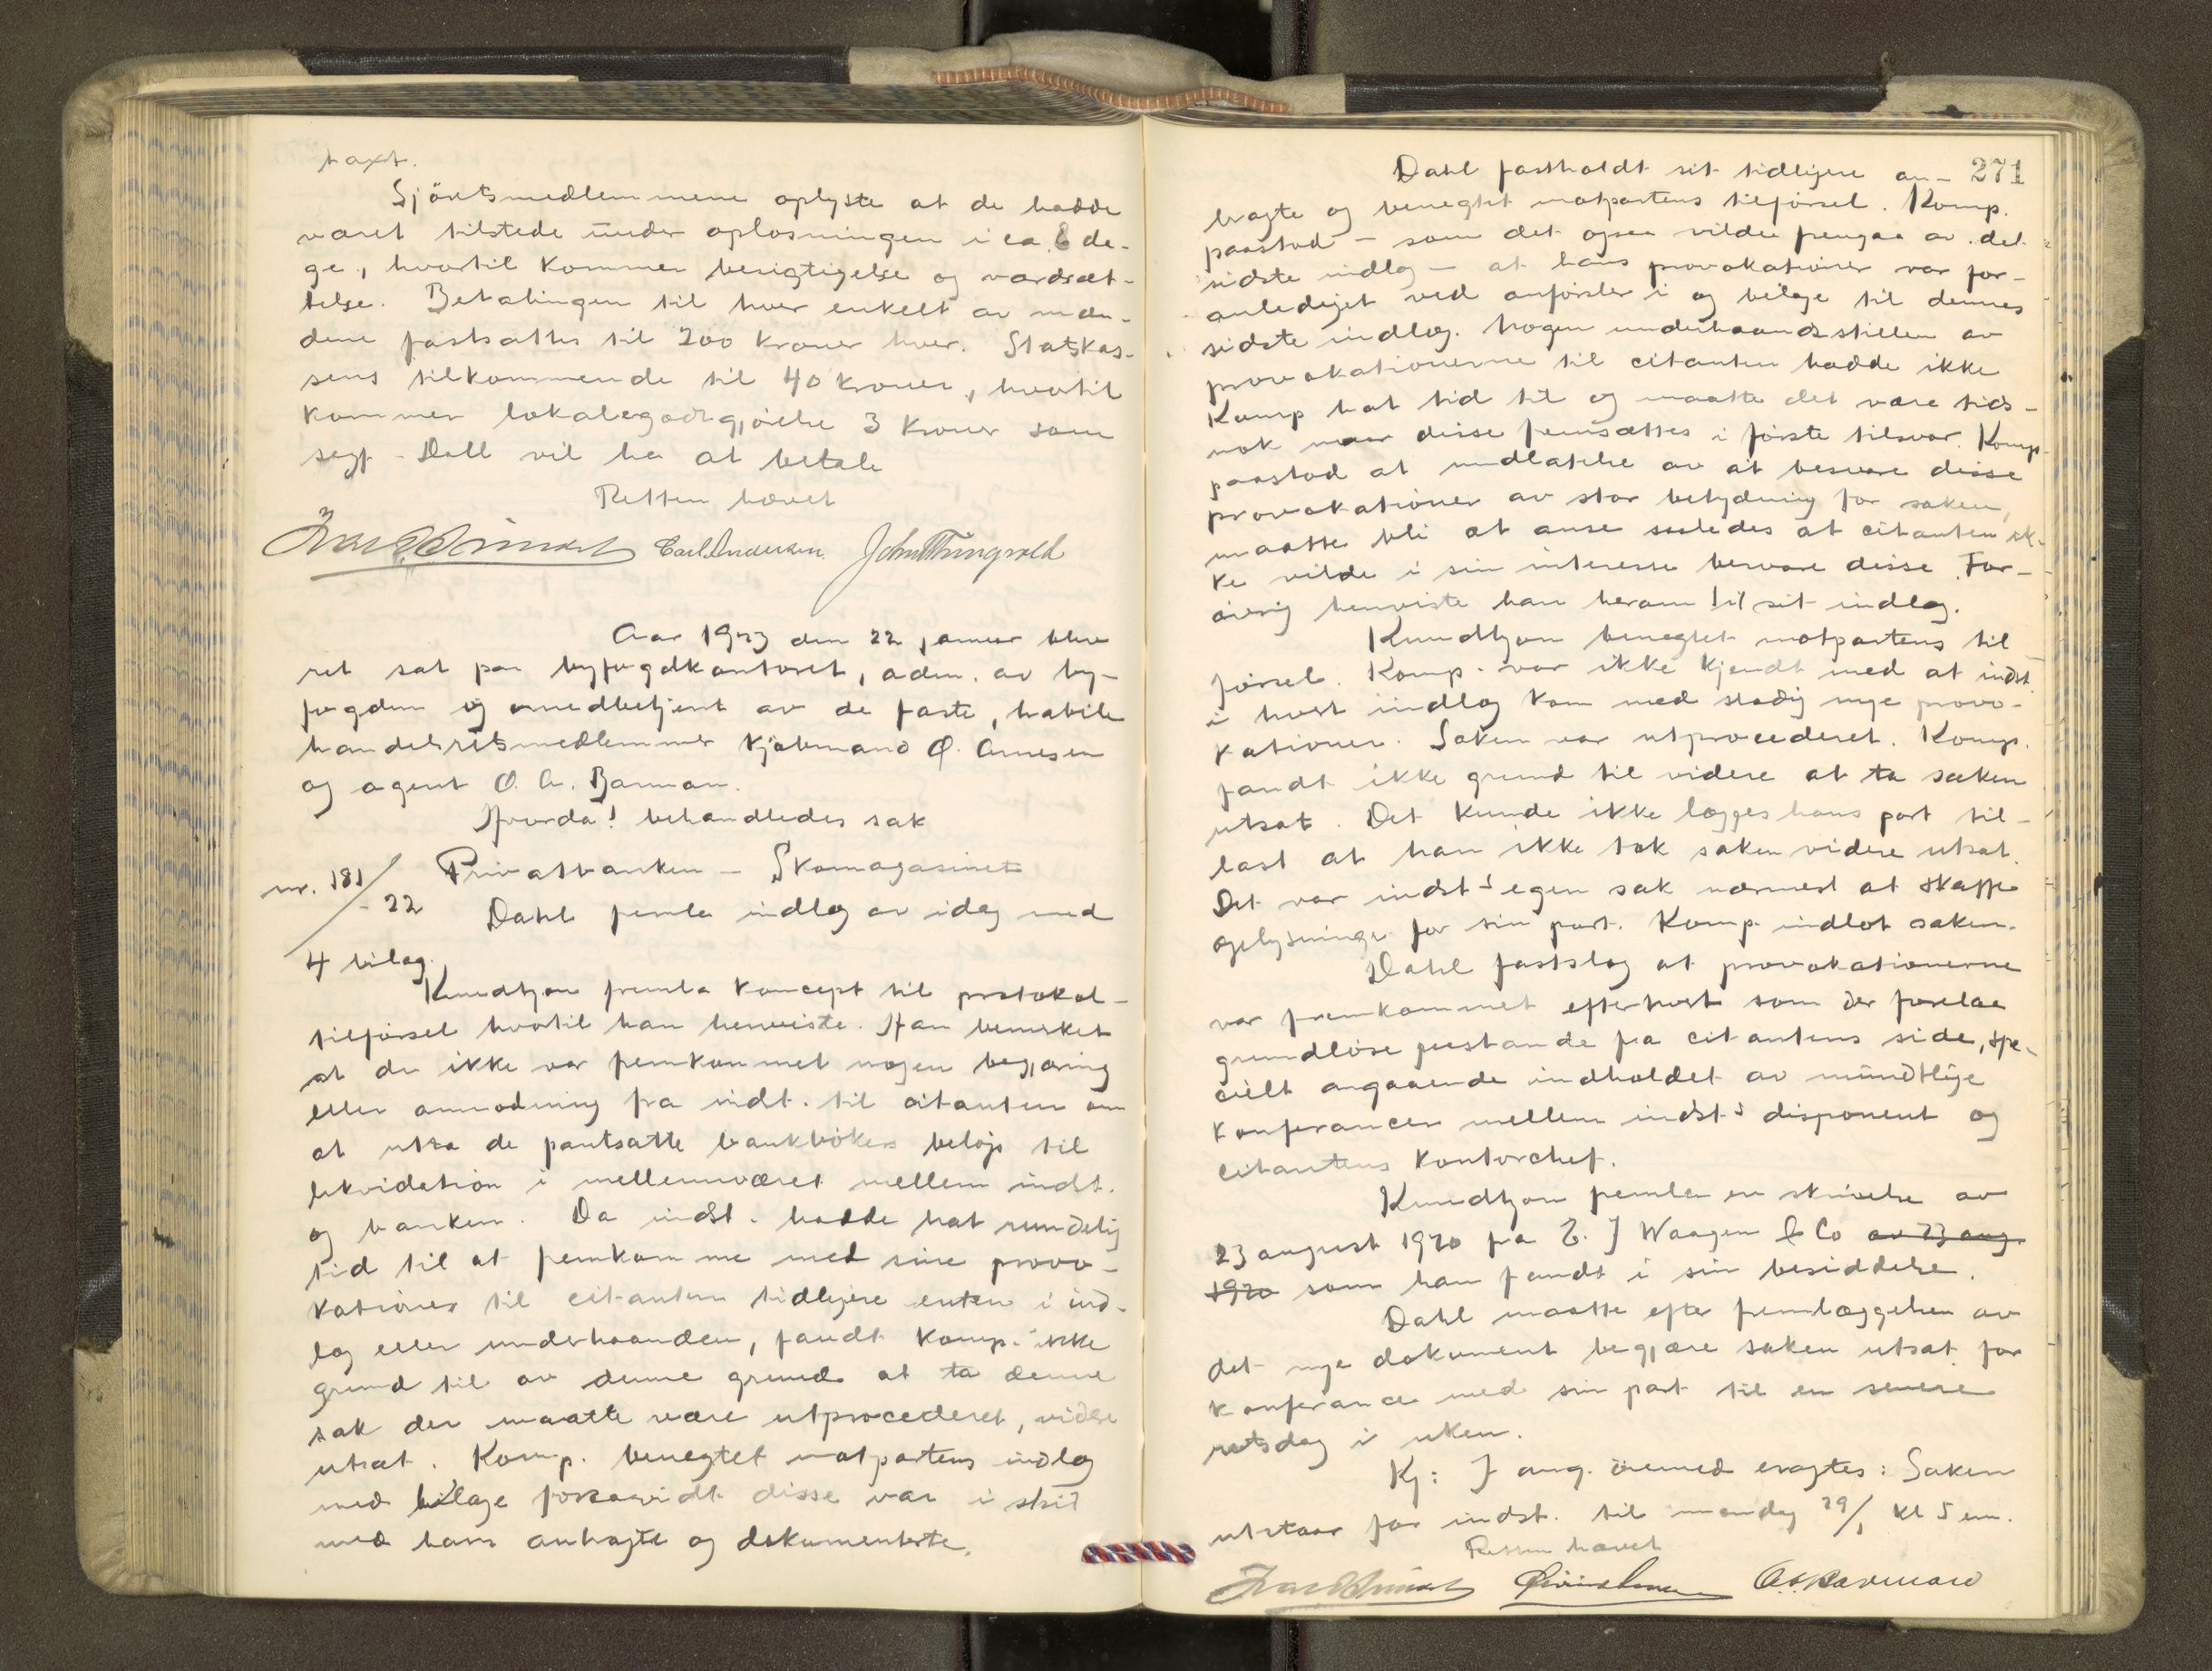 taxt.
Sjöretsmedlemmene oplyste at de hadde
været tilstede under oplosningen i ca. 8 da-
ge, hvortil kommer besigtigelse og værdsæt-
telse. Betalingen til hver enkelt av mæn-
dene fastsattes til 200 kroner hver. Statskas-
sens tilkommende til 40 kroner, hvortil
kommer lokalegodtgjörelse 3 kroner som
sagf. Dall vil ha at betale
Retten hævet
Carl Andersen. John Thingvold
Aar 1923 den 22 januar blev
ret sat paa byfogdkontoret, adm. av by-
fogden og medbetjent av de faste, habile
handelsretsmedlemmer kjöbmand Ø. Arnesen
og agent O. A. Barman.
Hvorda! behandledes sak
nr. 181/-22 Privatbanken - Skomagasinet
Dahl femla indlæg av idag med
4 bilag.
Knudtzon fremla koncept til protokol-
tilförsel hvortil han henviste. Han bemerket
at der ikke var femkommet nogen begjæring
eller anmodning fra indst. til citanten om
at uttа de pantsatte bankbökers belöp til
likvidation i mellemværet mellem indst.
og banken. Da indst. hadde hat rundelig
tid til at femkomme med sine provo-
kationer til citanten tidligere enten i ind-
læg eller underhaanden, fandt komp. ikke
grund til av denne grund at ta denne
sak der maatte være utprocederet, videre
utsat. Komp. benegtet motpartens indlæg
med bilage forsaavidt disse var i strid
med hans anbragte og dokumenterte.
271
Dahl fastholdt sit tidligere an-
bragte og benegtet motpartens tilförsel. Komp.
paastod - som det ogsaa vilde femgaa av det
sidste indlæg - at hans provokationer var for-
anlediget ved anförsler i og bilage til dennes
sidste indlæg. Nogen underhaandsstillen av
provokationerne til citanten hadde ikke
Komp hat tid til og maatte det være tids-
nok naar disse femsættes i förste tilsvar. Komp.
paastod at undlatelse av at besvare disse
provokationer av stor betydning for saken,
maatte bli at anse saaledes at citanten ik-
ke vilde i sin interesse besvare disse. For-
övrig henviste han herom til sit indlæg.
Knudtzon benegtet motpartens til
försel. Komp. var ikke kjendt med at indst.
i hvert indlæg kom med stadig nye provo-
kationer. Saken var utprocederet. Komp.
fandt ikke grund til videre at ta saken
utsat. Det kunde ikke lægges hans part til-
last at han ikke tok saken videre utsat.
Det var indst's egen sak nærmest at skaffe
oplysninger for sin part. Komp. indlot saken.
Dahl fastslog at provokationerne
var fremkommet efterhvert som der forelaa
grundlöse paastande fra citantens side, spe-
cielt angaaende indholdet av mündtlige
konferancer mellem indst's disponent og
citantens kontorchef.
Knudtzon femla en skrivelse av
23 august 1920 fra E. J Waagen & Co av 23 aug.
1920 som han fandt i sin besiddelse.
Dahl maatte efter femlæggelsen av
det nye dokument begjære saken utsat for
konferance med sin part til en senere
retsdag i uken.
Kj: I ang. öiemed eragtes: Saken
utstaar for indst. til mandag 29/1 kl 5 em.
Retten hævet